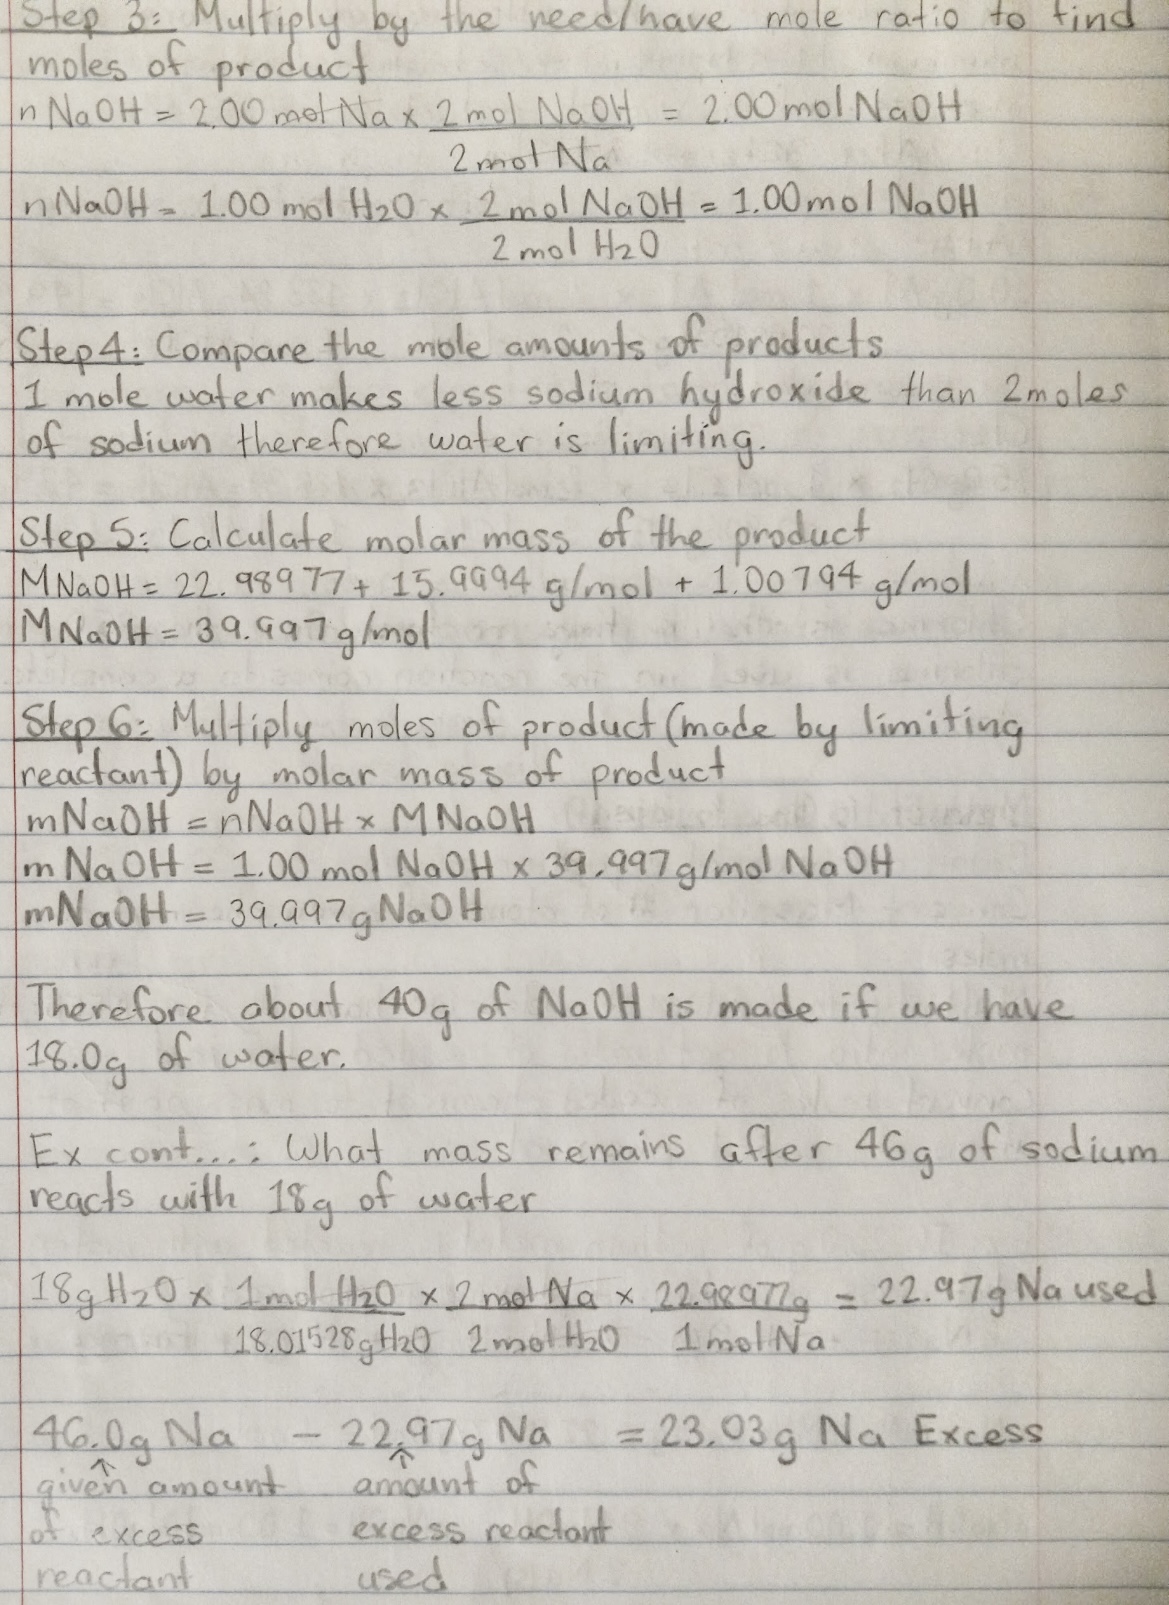 Step 3: Multiply by the need/have mole ratio to find
moles of product
nNaOH = 2.00 mol Na x 2 mol NaOH = 2.00 mol NaOH
2 mol Na
nNaOH = 1.00 mol H2O x 2 mol NaOH = 1.00 mol NaOH
2 mol H2O
Step 4: Compare the mole amounts of products
1 mole water makes less sodium hydroxide than 2 moles
of sodium therefore water is limiting.
Step 5: Calculate molar mass of the product
MNaOH = 22.98977 + 15.9994 g/mol + 1.00794 g/mol
MNaOH = 39.997 g/mol
Step 6: Multiply moles of product (made by limiting
reactant) by molar mass of product
mNaOH = nNaOH x MNaOH
mNaOH = 1.00 mol NaOH x 39.997 g/mol NaOH
mNaOH = 39.997g NaOH
Therefore about 40g of NaOH is made if we have
18.0g of water.
Ex cont...: What mass remains after 46g of sodium
reacts with 18g of water
18g H2O x 1 mol H2O x 2 mol Na x 22.98977g = 22.97g Na used
18.01528g H2O 2 mol H2O 1 mol Na
46.0g Na - 22.97g Na = 23.03g Na Excess
↑ ↑
given amount amount of
of excess excess reactant
reactant used